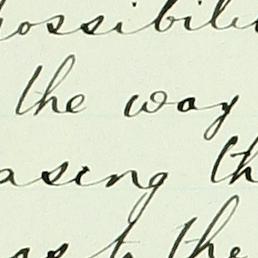 possibili
the way
asing th
as to the